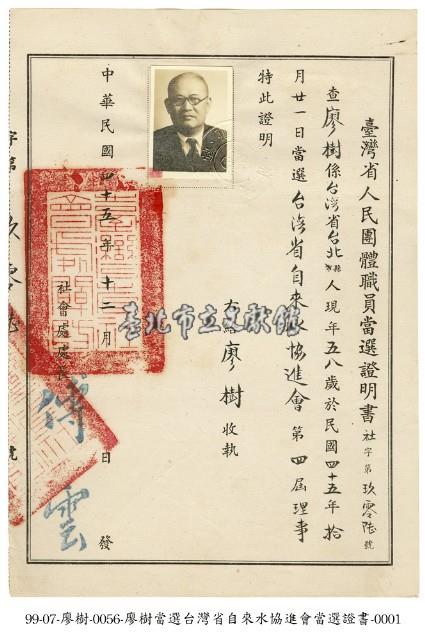 臺灣省人民團體職員當選證明書 社字第玖零陸號
查廖樹係台灣省台北縣人現年五八歲於民國四十五年拾
月廿一日當選台灣省自來水協進會第四屆理事
特此證明
右給廖樹收執
社會處處長傅雲
中華民國四十五年十二月 日發
字第玖零陸號
臺北市立文獻館
99-07-廖樹-0056-廖樹當選台灣省自來水協進會當選證書-0001